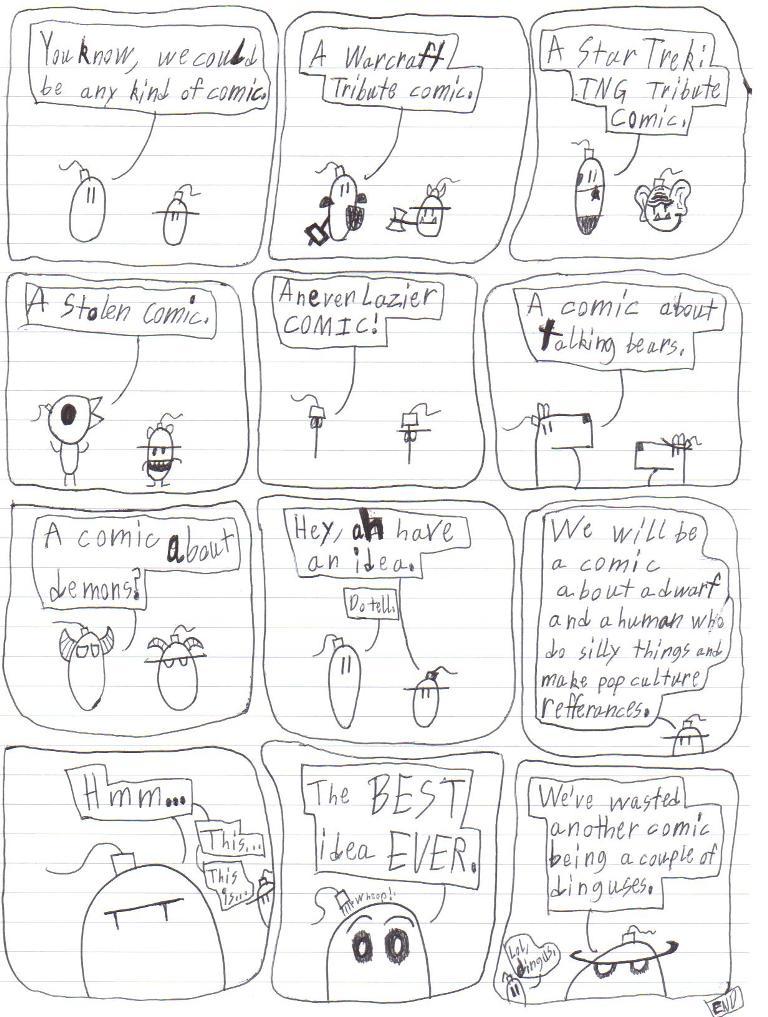 You know, we could
be any kind of comic.
A Warcraft
Tribute comic.
A Star Trek:
TNG Tribute
Comic.
A Stolen Comic.
An even Lazier
COMIC!
A comic about
talking bears.
A comic about
demons?
Hey, ah have
an idea.
Do tell.
We will be
a comic
about a dwarf
and a human who
do silly things and
make pop culture
refferances.
Hmm...
This...
This
is...
The BEST
idea EVER.
Whoop!
We've wasted
another comic
being a couple of
dinguses.
Lol,
dingus.
END